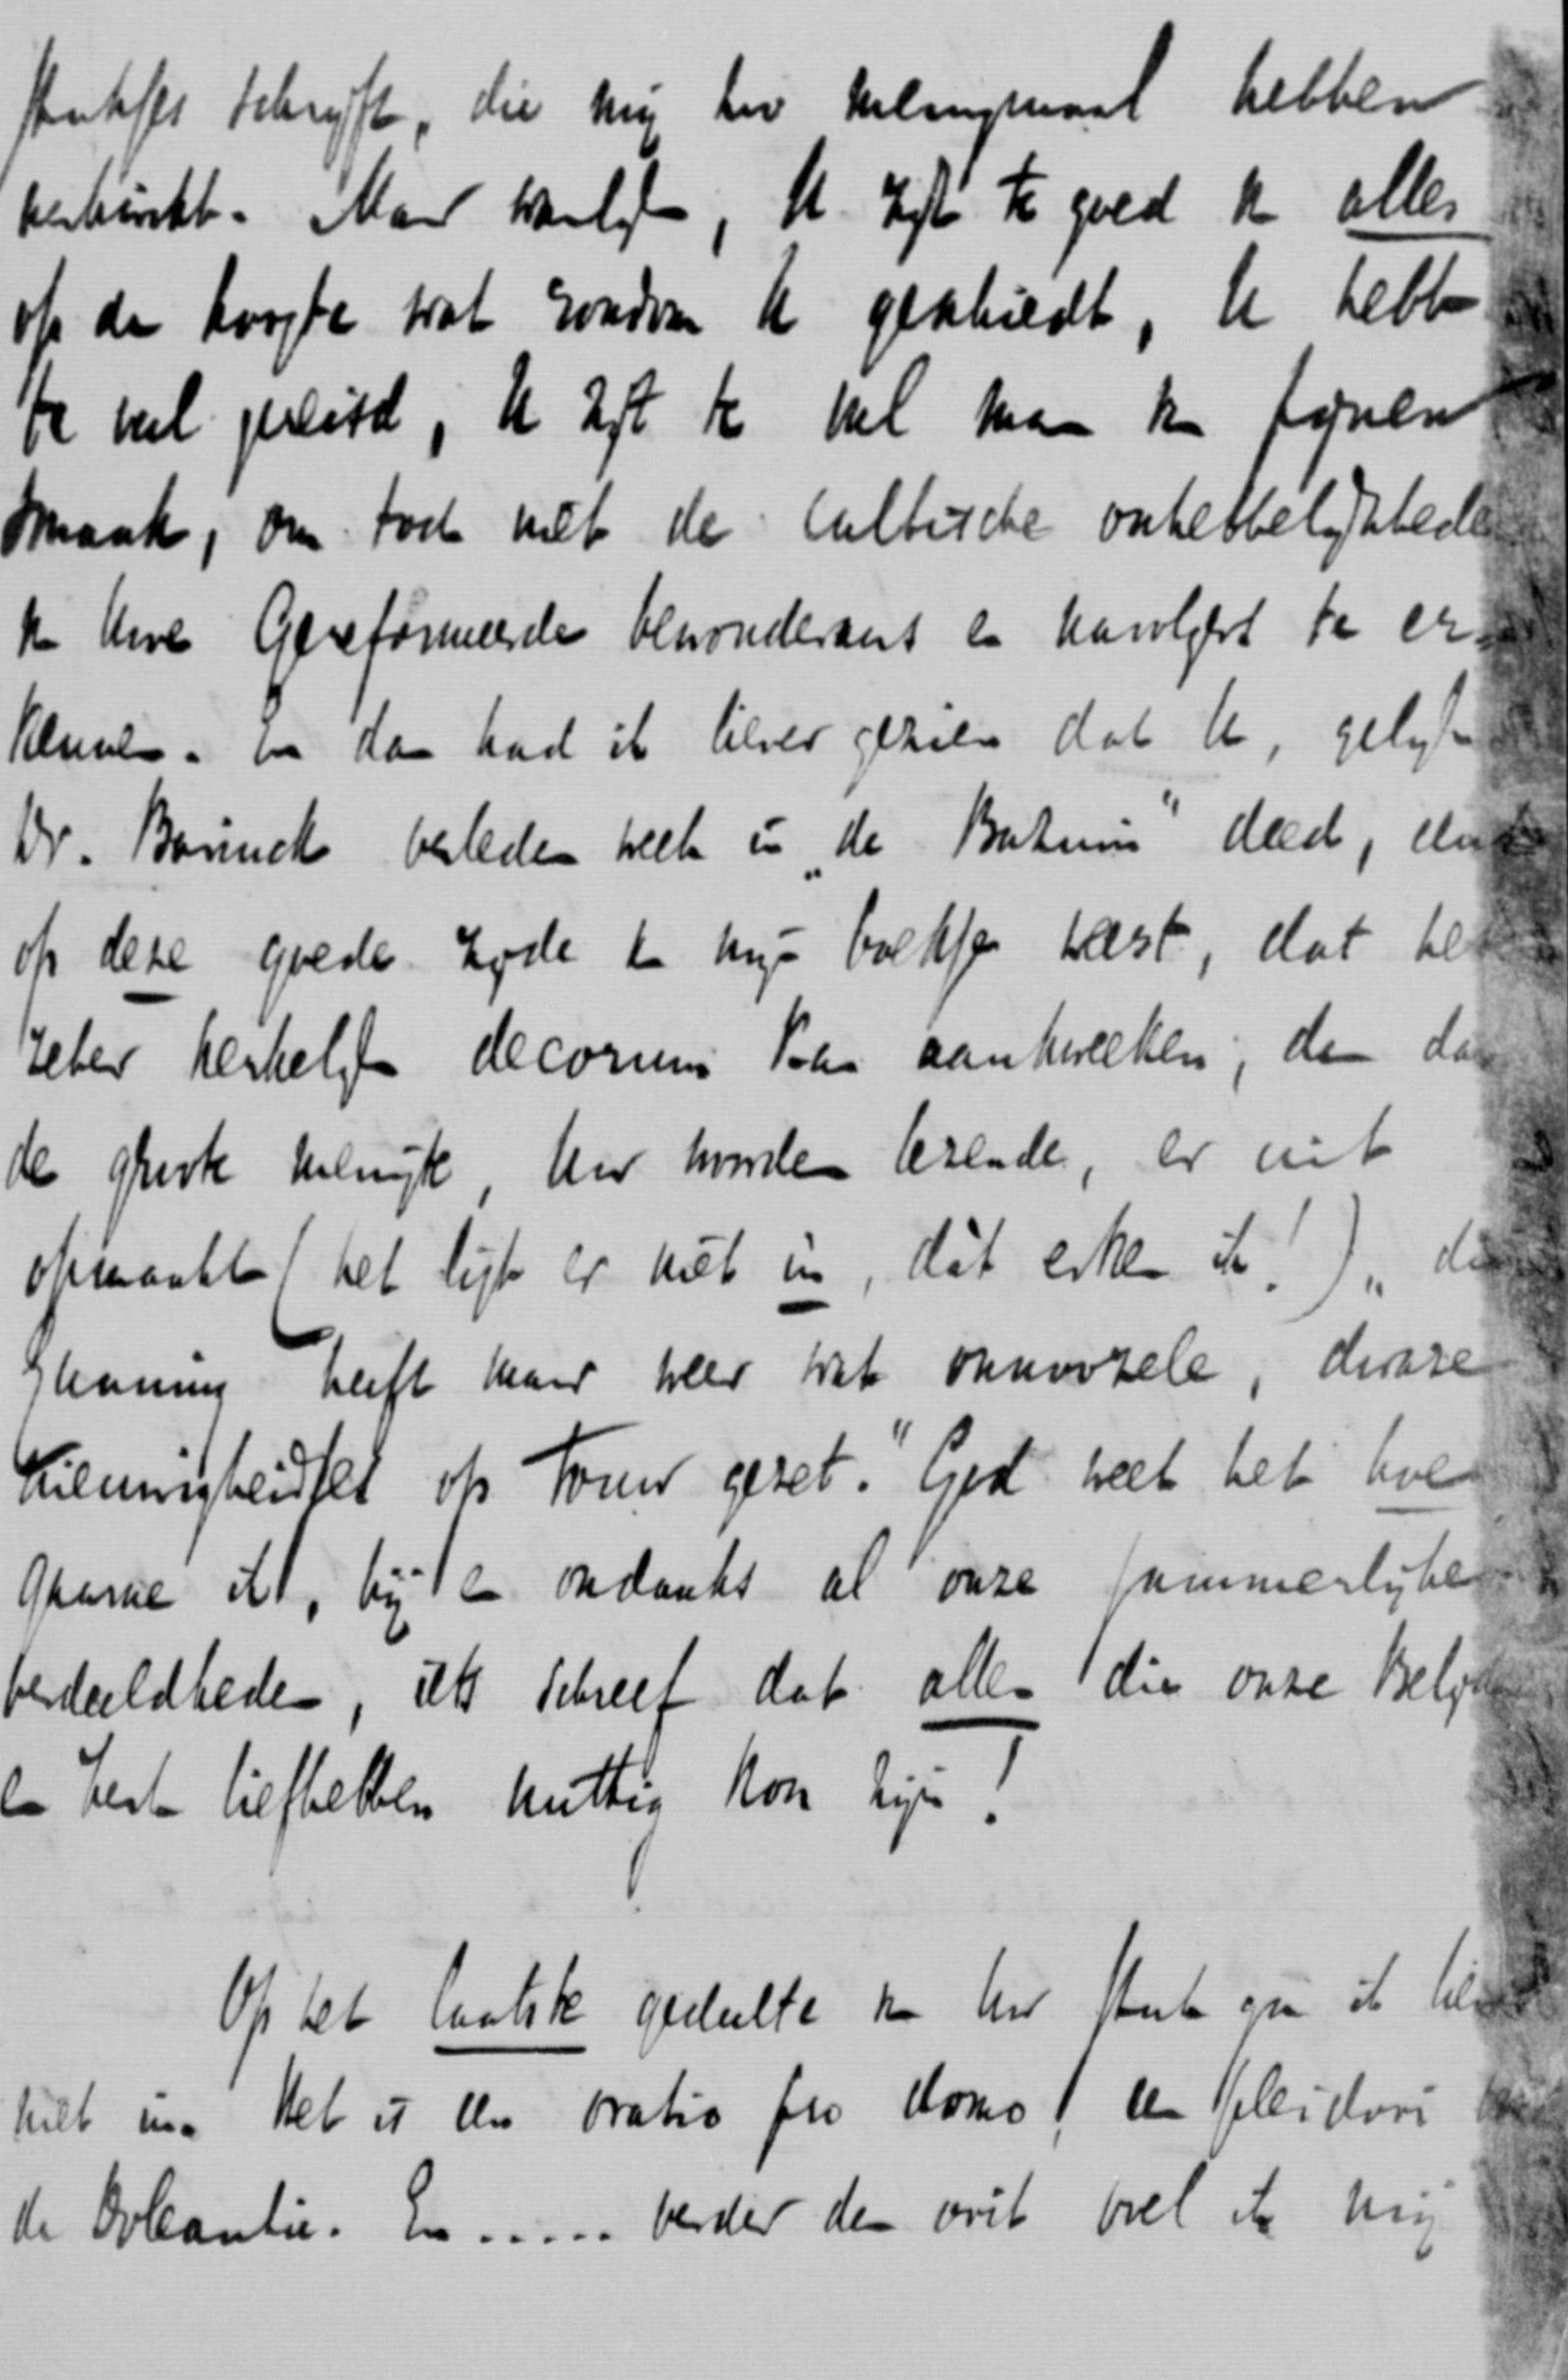 stukjes schrijft, die mij zoo menigmaal hebben
verkwikt. Maar waarlijk, U zijt te goed van alles
op de hoogte wat rondom U geschiedt, U hebt
te veel gereisd, U zijt te veel man van fijnen
smaak, om toch niet de cultische onhebbelijkhede
van Uwe Gereformeerde bewonderaars en navolgers te er-
kennen. En dan had ik liever gezien dat U, gelijk
Dr. verleden week in "de Bazuin" deed,
op deze goede zijde van mijn boekje weest, dat het
zeker kerkelijk decorum kan aankweeken, dan dat
de groote menigte, Uw woorden lezende, er uit
opmaakt (het ligt er niet in, dát erken ik!) "
Gunning heeft maar weer wat onnoozele, dwaze
kleinigheidjes op touw gezet." God weet het hoe
gaarne ik, bij en ondanks al onze jammerlijke
verdeeldheden, iets schreef dat allen die onze Belijd
en Kerk liefhebben nuttig kon zijn!
Op het laatste gedeelte van Uw stuk ga ik liever
niet in. Het is een oratio pro domo, een pleidooi
de Doleantie. En ..... verder dan ooit voel ik mij